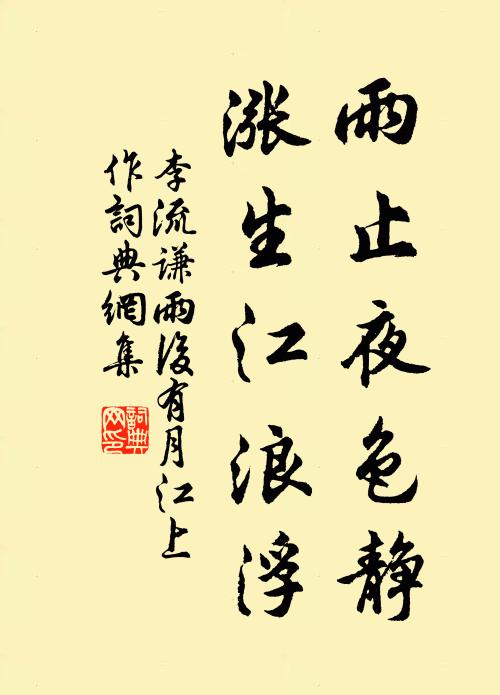 雨止夜色静
涨生江浪浮
李流谦雨後有月江上
作詞典網集
詞典网印